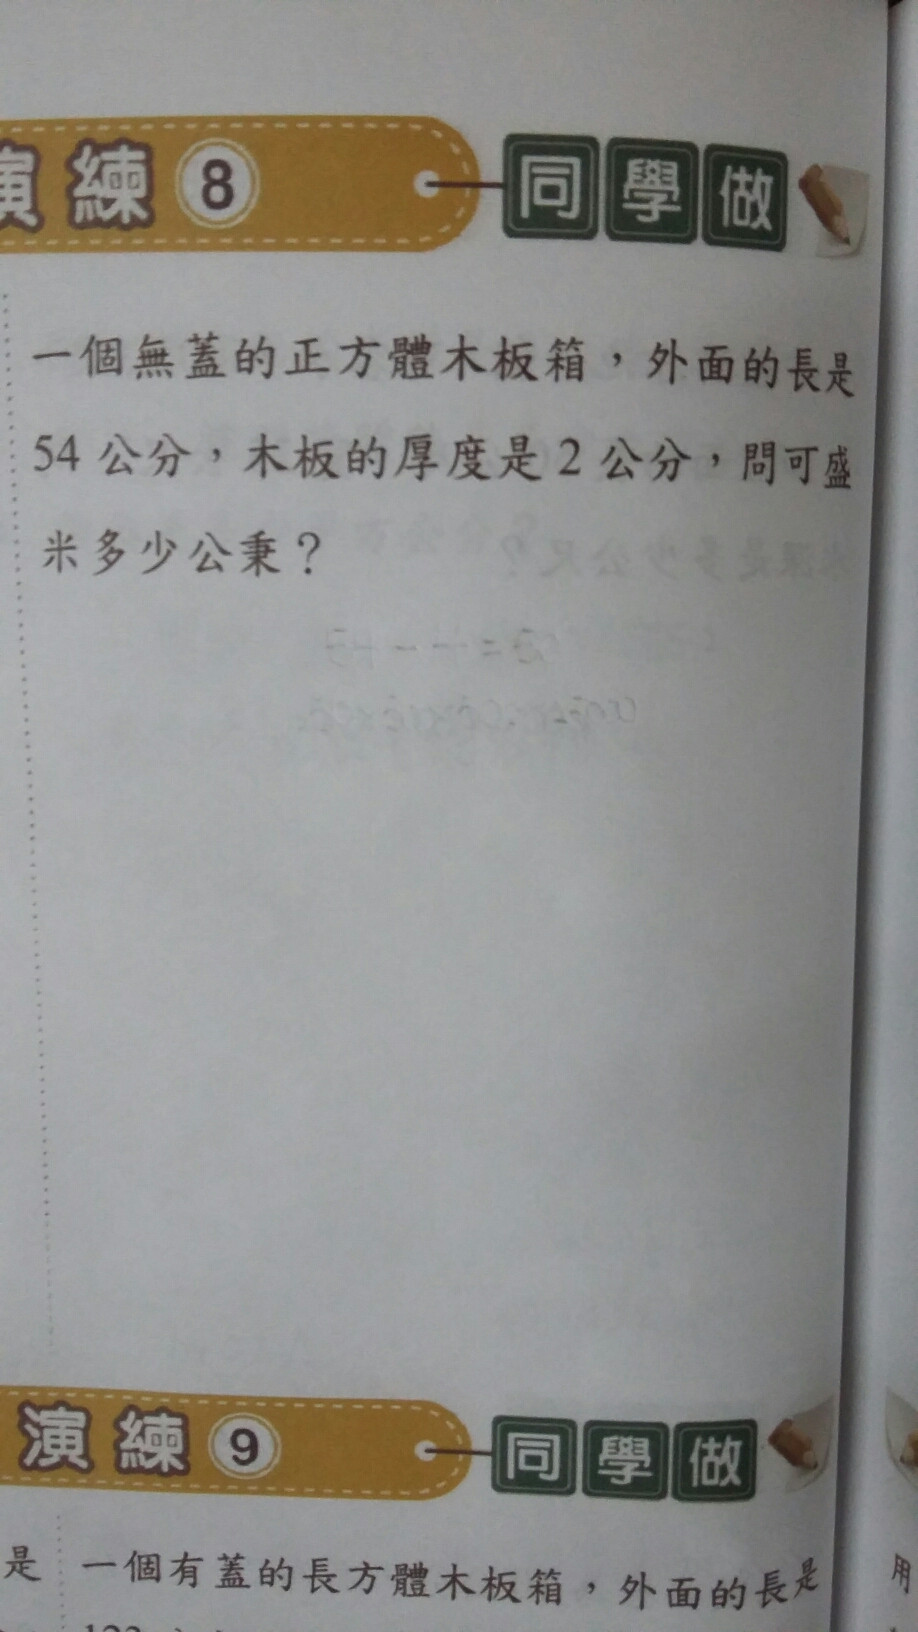 演練 8 同學做
一個無蓋的正方體木板箱，外面的長是
54 公分，木板的厚度是 2 公分，問可盛
米多少公秉？
演練 9 同學做
是 一個有蓋的長方體木板箱，外面的長是
用